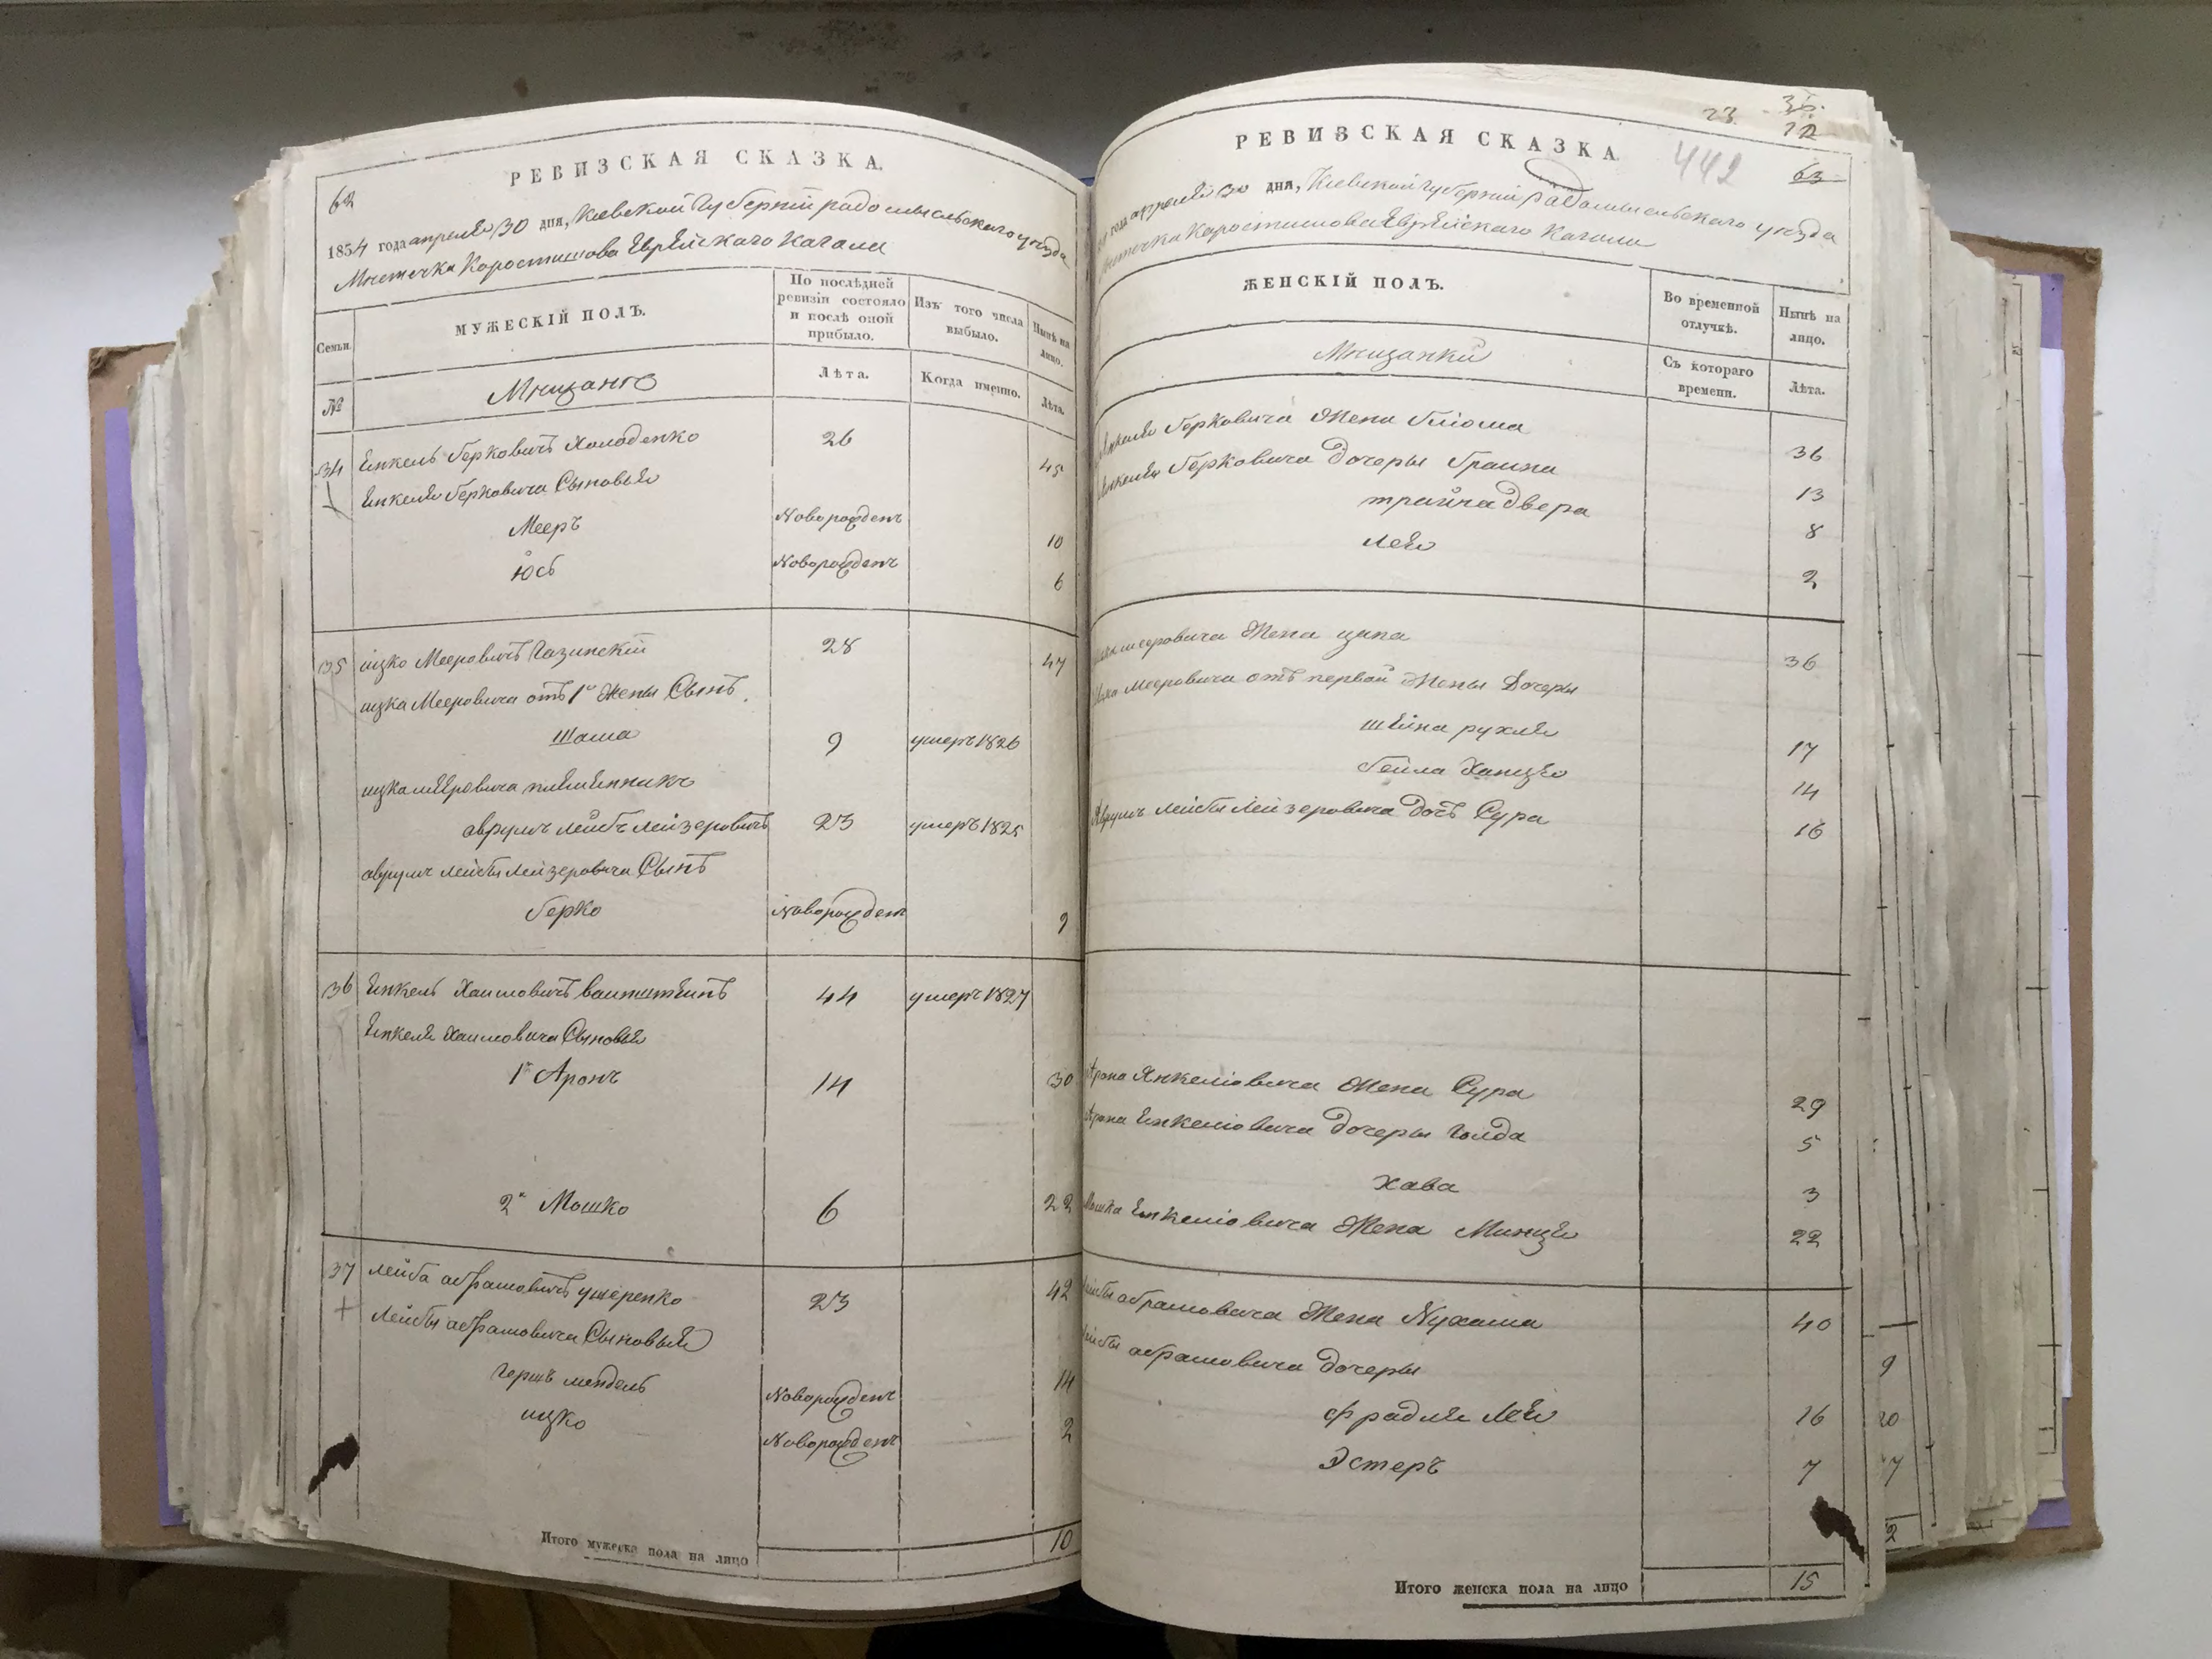 РЕВИЗСКАЯ СКАЗКА.
62
1854 года апреля 30 дня, Киевской Губерніи радомысльского уезда
Мистечка Коростишова Еврейского Кагала
Семьи.
МУЖЕСКІЙ ПОЛЪ.
По послѣдней ревизіи состояло и послѣ оной прибыло.
Изъ того числа выбыло.
Нынѣ на лицо.
№
Мещане
Лѣта.
Когда именно.
Лѣта.
34 Енкель Берковичъ Холоденко 26 45
Енкеля Берковича Сыновья
Мееръ Новорожденъ 10
Юсь Новорожденъ 6
35 ицко Мееровичъ 28 47
ицка Мееровича отъ 1й Жены Сынъ.
Шама 9 умеръ 1826
ицка меровича племенникъ
аврумъ лейбъ Лейзеровичъ 23 умеръ 1825
аврумъ лейбы Лейзеровича Сынъ
берко Новорожденъ 9
36 Енкель Хаимовичъ ваинштеинъ 44 умеръ 1827
Енкеля Хаимовича Сыновья
1й Аронъ 14 30
2й Мошко 6 22
37 лейба абрамовичъ ушеренко 23 42
Лейбы абрамовича Сыновья
Гершъ мендель Новорожденъ 14
ицко Новорожденъ 2
Итого мужеска пола на лицо 10
23 442 63
РЕВИЗСКАЯ СКАЗКА
года апреля 30 дня, Киевской Губерніи Радомысльского уезда
Коростишова Еврейского Кагала
ЖЕНСКІЙ ПОЛЪ.
Во временной отлучкѣ.
Нынѣ на лицо.
Мещанки
Съ котораго времени.
Лѣта.
Берковича Жена блюма 36
Берковича дочеры браина 13
трайна двера 8
лея 2
мееровича Жена ципа 36
Мееровича отъ первой Жены Дочеры
шейна рухля 17
бейла Ханця 14
Аврумъ лейбы Лейзеровича дочь Сура 16
Арона Янкеліовича Жена Сура 29
Арона Енкеліовича дочеры Голда 5
Хава 3
Мошка Енкеліовича Жена Минця 22
абрамовича Жена Нухама 40
абрамовича дочеры
фрадля лея 16
Эстеръ 7
Итого женска пола на лицо 15